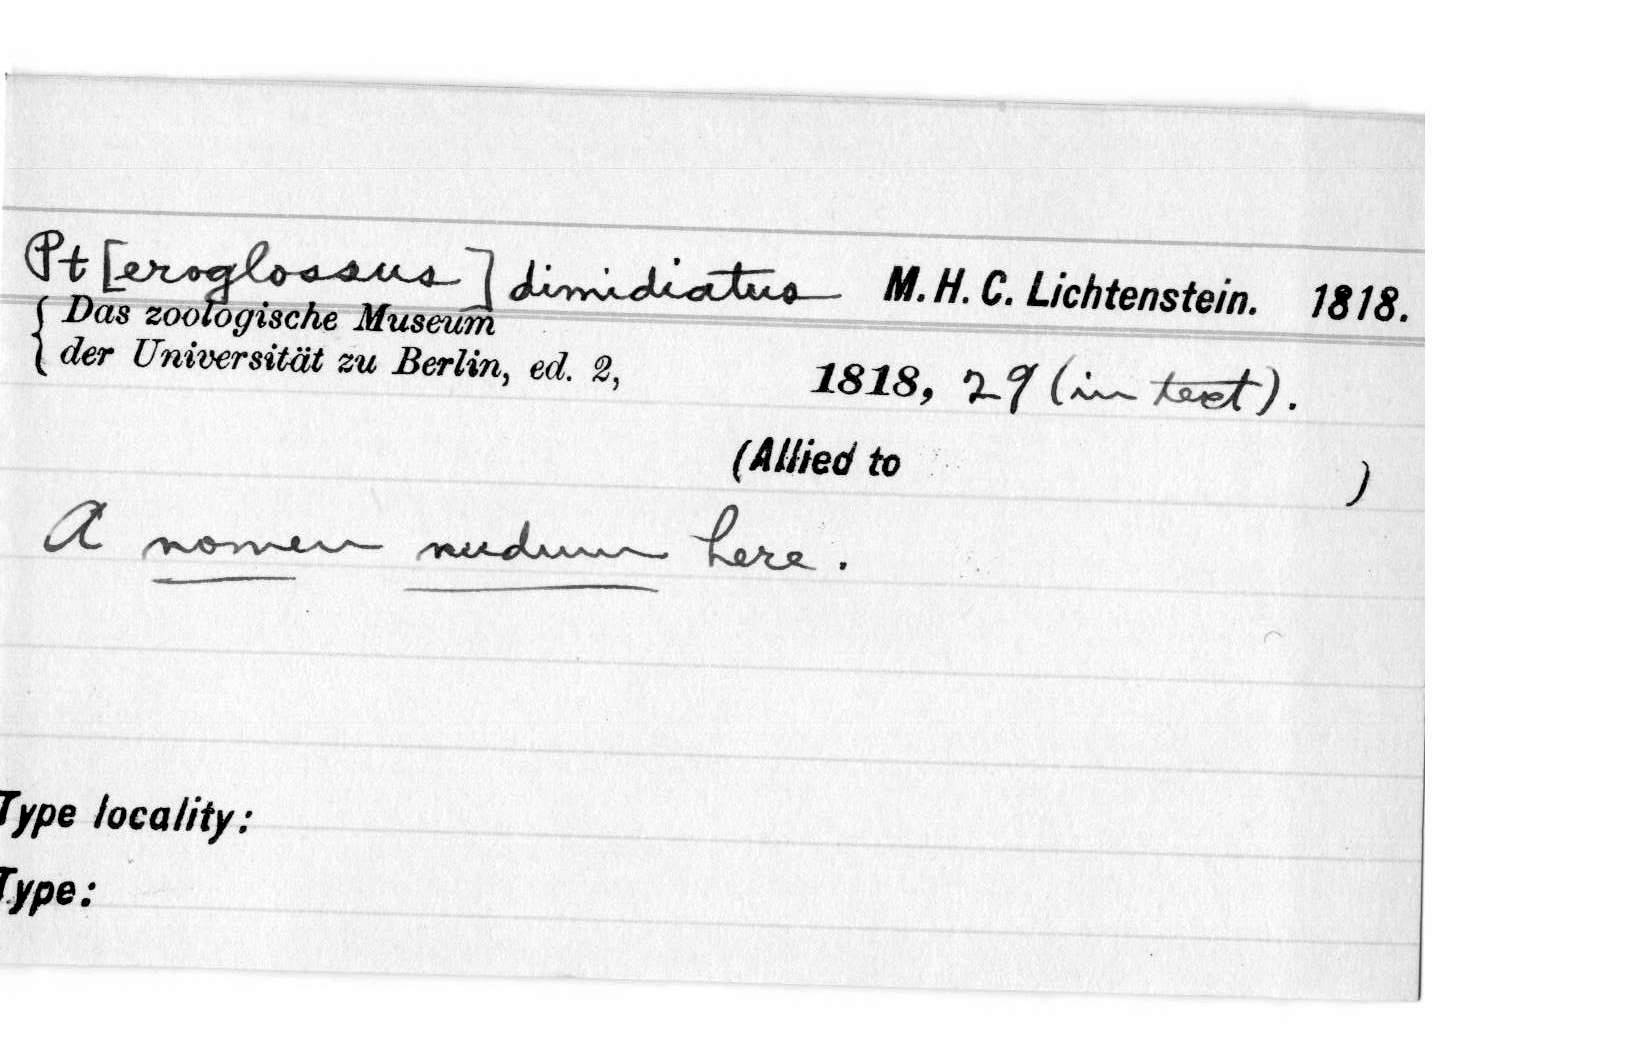 Pt[eroglossus] dimidiatus M. H. C. Lichtenstein. 1818.
{ Das zoologische Museum
{ der Universität zu Berlin, ed. 2, 1818, 29 (in text).
(Allied to )
A nomen nudum here.
Type locality:
Type: